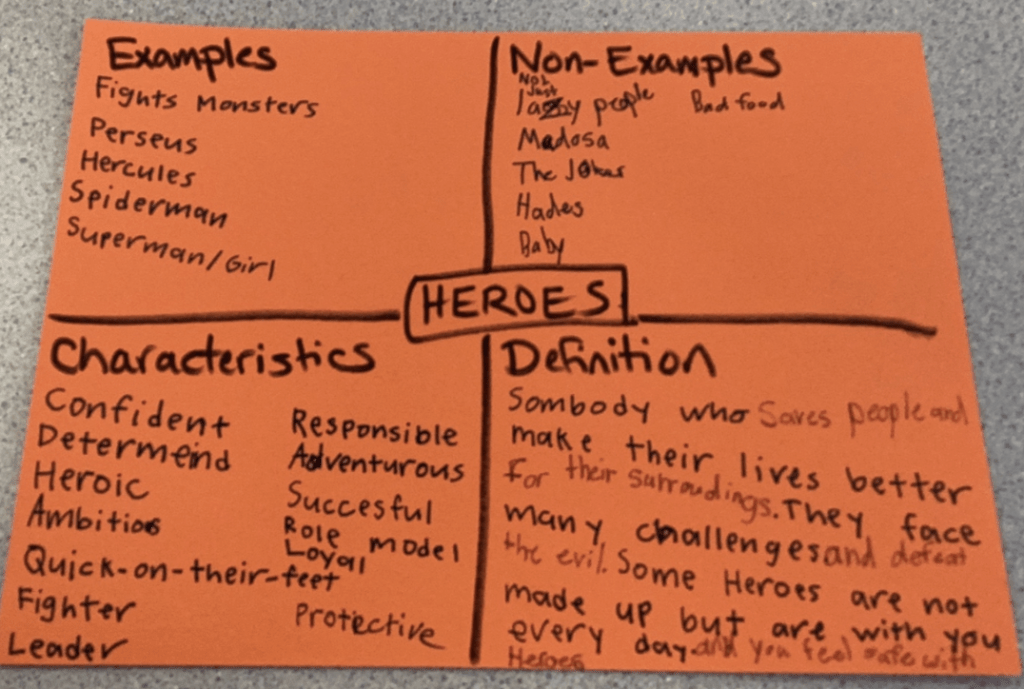 Examples
Fights Monsters
Perseus
Hercules
Spiderman
Superman/Girl
Non-Examples
Not Just
lazy people Bad food
Madosa
The Joker
Hades
Baby
HEROES
Characteristics
Confident
Determeind
Heroic
Ambitios
Quick-on-their-feet
Fighter
Leader
Responsible
Adventurous
Succesful
Role model
Loyal
Protective
Definition
Sombody who Saves people and
make their lives better
for their surroudings. They face
many challenges and defeat
the evil. Some Heroes are not
made up but are with you
every day and you feel safe with
Heroes